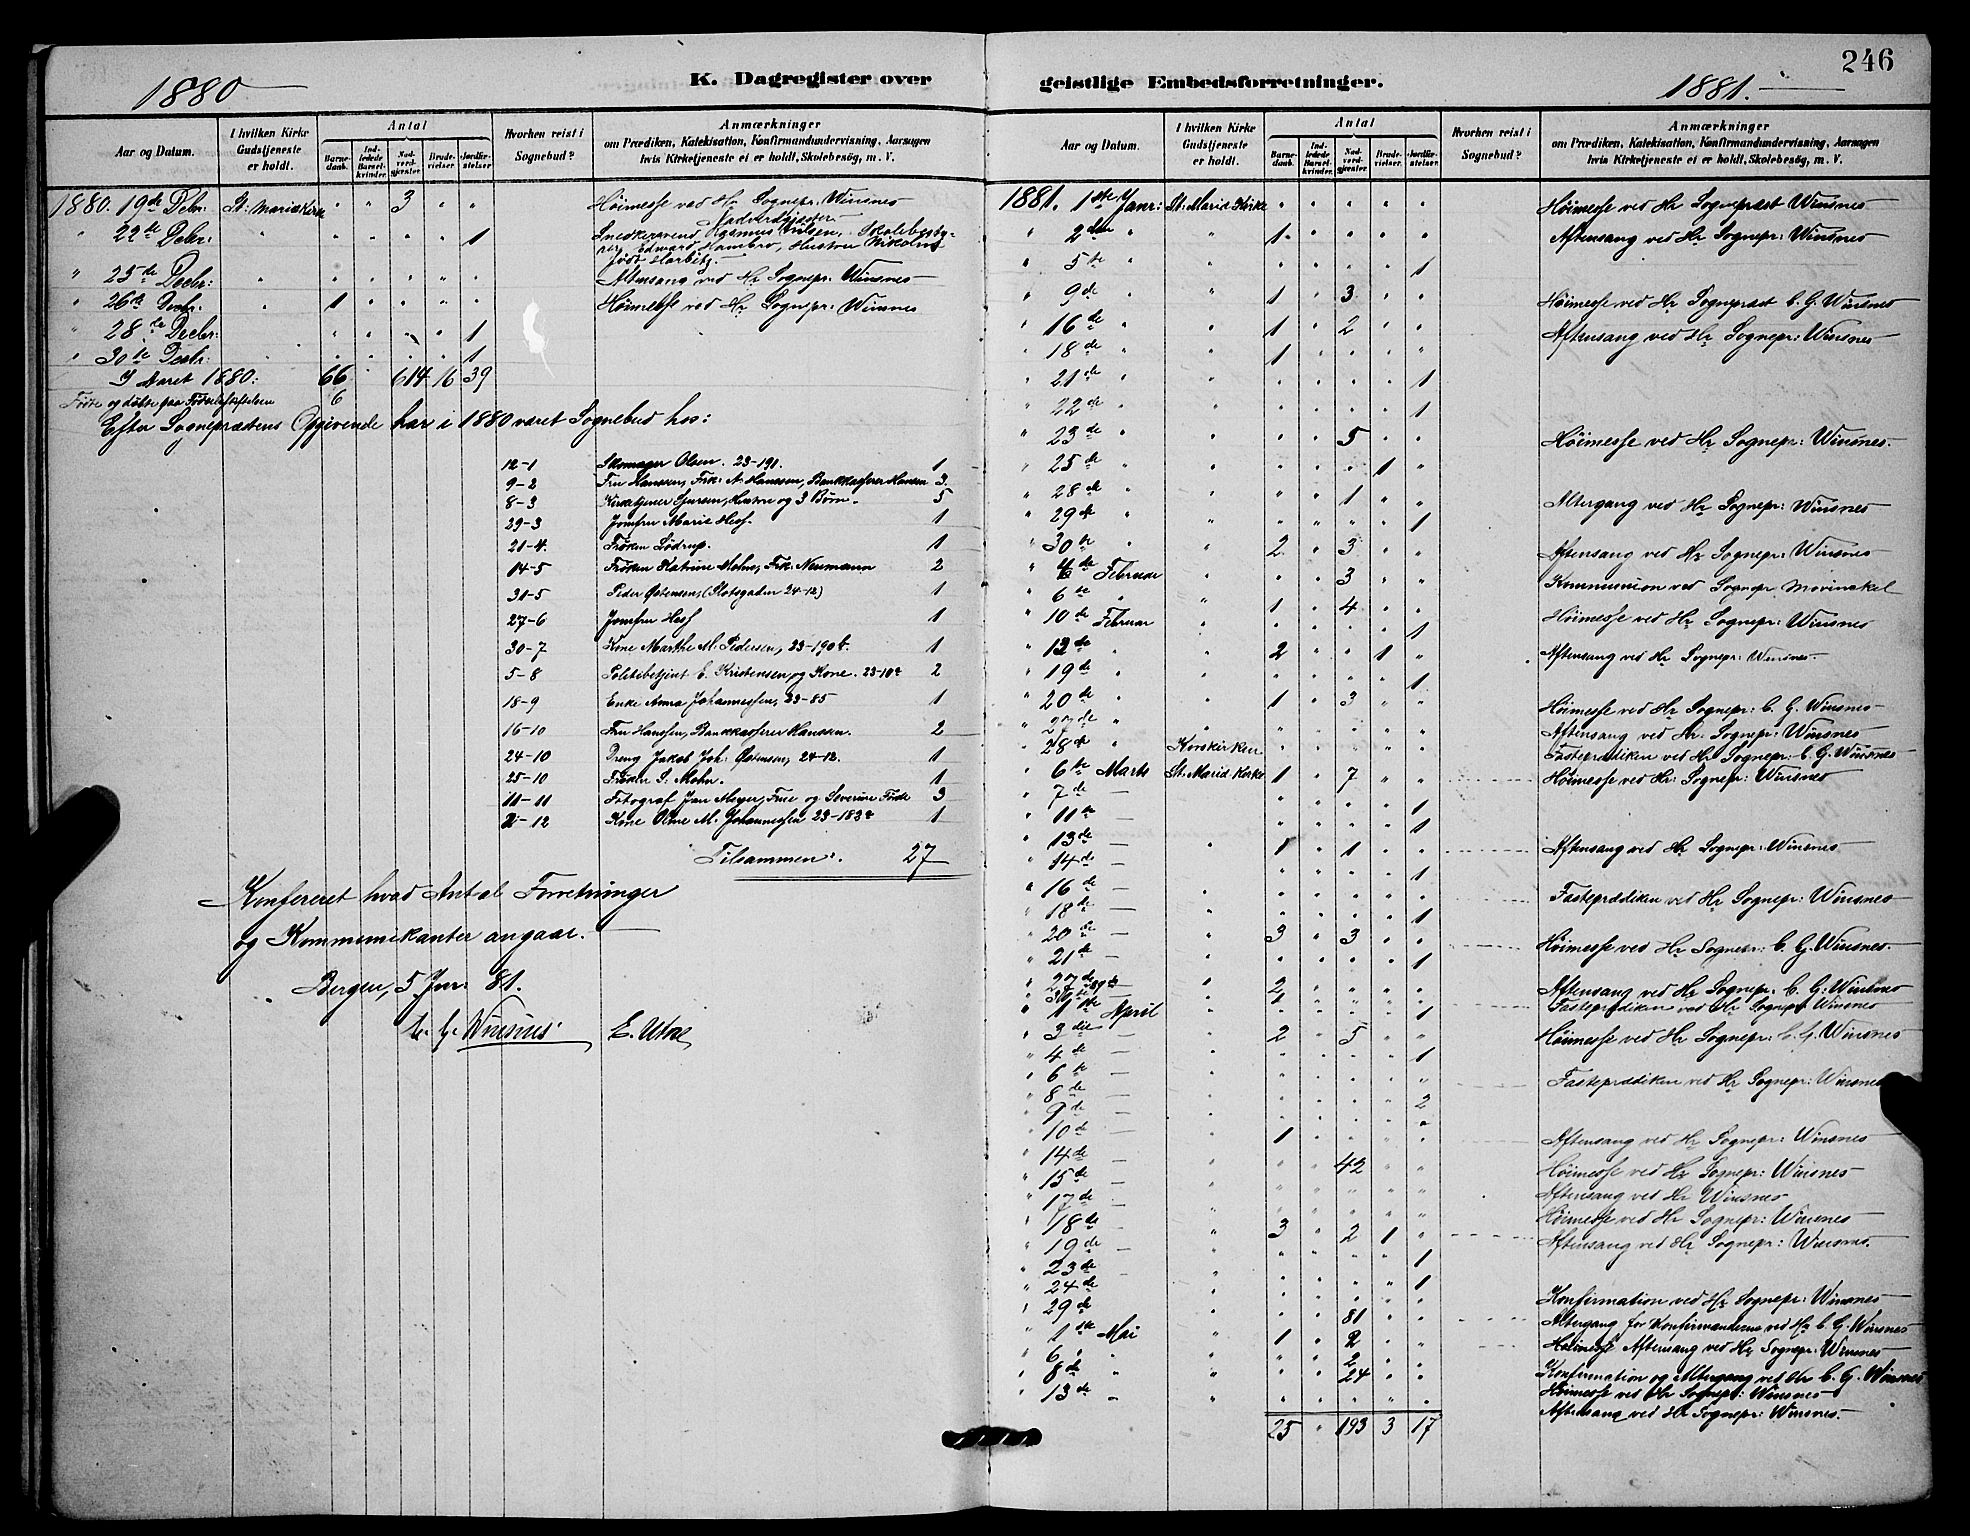 246
1880
K. Dagregister over
Aar og Datum.
I hvilken Kirke Gudstjeneste er holdt.
Antal
Barnedaab.
Indledede Barselkvinder.
Nadverdgjæster.
Brudevielser.
Jordfæstelser.
Hvorhen reist i Sognebud?
Anmærkninger
om Prædiken, Katekisation, Konfirmandundervisning, Aarsagen
hvis Kirketjeneste ei er holdt, Skolebesøg, m. V.
1880. 19de Debr: St: Mariækirke " " 3 " " Høimesse ved Hr Sognepr: Winsnes
Nadverdgjæster
" 22de Debr: " " " " " 1 Snedkersvend Rasmus Nilsen, Skolebesty-
rer Edward Hambro, Hustru Nikoline
født Harbitz.
" 25de Decbr: " " " " " " Aftensang ved Hr Sognepr: Winsnes
" 26de Decbr. " 1 " " " " Høimesse ved Hr Sognepr: Winsnes
" 28de Decbr: " " " " 1
" 30te Decbr: " " " " " 1
I Aaret 1880: 66 " 614 16 39
Fødte og døbte paa Fødselsstiftelsen 6
Efter Sognepræstens Opgivende har i 1880 været Sognebud hos:
12-1 Skomager Olsen. 23-191. 1
9-2 Fru Hanssen, Frk: A. Hanssen, Bankkasserer Hansen 3.
8-3 Kirketjener Iversen, Hustru og 3 Børn. 5
29-3 Jomfru Marie Hess. 1
21-4. Frøken Lødrup. 1
14-5 Frøken Katrine Mohn, Frk: Neumann 2
31-5 Peder Østensen, (Slotsgaden 24-12) 1
27-6 Jomfru Hess 1
30-7 Kone Marthe M. Pedersen, 23-190b. 1
5-8 Politibetjent C. Kristensen og Kone. 23-10a 2
18-9 Enke Anna Johannessen, 23-85 1
16-10 Fru Hanssen, Bankkasserer Hanssen. 2
24-10 Dreng Jakob Joh: Østensen, 24-12. 1
25-10 Frøken S. Mohn. 1
11-11 Fotograf Jan Meyer, Frue og Severine Føide 3
2-12 Kone Oline M. Johannessen 23-183a 1
Tilsammen: 27
Konfereret hvad Antal Forretninger
og Kommunikanter angaar.
Bergen, 5 Jnr: 81.
C. G. Winsnes. E. Utne
geistlige Embedsforretninger.
1881.
Aar og Datum.
I hvilken Kirke Gudstjeneste er holdt.
Antal
Barnedaab.
Indledede Barselkvinder.
Nadverdgjæster.
Brudevielser.
Jordfæstelser.
Hvorhen reist i Sognebud?
Anmærkninger
om Prædiken, Katekisation, Konfirmandundervisning, Aarsagen
hvis Kirketjeneste ei er holdt, Skolebesøg, m. V.
1881. 1ste Janr: St. Mariæ Kirke " " " " " Høimesse ved Hr Sognepræst Winsnes
" 2den " " 1 " " " " Aftensang ved Hr Sognepr: Winsnes
" 5te " " " " " " 1
" 9de " " 1 " 3 " " Høimesse ved Hr Sognepræst C. G. Winsnes
" 16de " " 1 " 2 " " Aftensang ved Hr Sognepr: Winsnes
" 18de " " 1 " " " "
" 21de " " " " " " 1
" 22de " " " " " " 1
" 23de " " " " 5 " " Høimesse ved Hr Sognepr: Winsnes.
" 25de " " " " " 1 "
" 28de " " " " 1 " " Altergang ved Hr Sognepr: Winsnes
" 29de " " " " " " 1
" 30te " " 2 " 3 " " Aftensang ved Hr Sognepr: Winsnes
" 4de Februar " " " 3 " " Kommunion ved Sognepr Mevinckel
" 6te " " 1 " 4 " " Høimesse ved Hr Sognepr: Winsnes
" 10de Februar " " " " " 1
" 12de " " 2 " " 1 " Aftensang ved Hr Sognepr: Winsnes.
" 19de " " " " " " 1
" 20de " " 1 " 3 " " Høimesse ved Hr Sognepr: C. G. Winsnes
" 27de " " " " " " " Aftensang ved Hr. Sognepr: Winsnes
" 28de " Korskirken " " " " " Fasteprædiken ved Hr Sognepr: C. G. Winsnes
" 6te Marts St. Mariæ Kirke 1 " 7 " " Høimesse ved Hr: Sognepr: Winsnes
" 7de — " " " " 1
" 11te — " " " " 1
" 13de — " 1 " 1 " " Aftensang ved Hr Sognepr: Winsnes
" 14de — " " " " 1
" 16de — " " " " " " Fasteprædiken ved Hr Sognepr: Winsnes
" 18de — " " " " " 1
" 20de — " 3 " 3 " " Høimesse ved Hr Sognepr: C. G. Winsnes.
" 21de — " " " " " 1
" 27de — " 2 " " " " Aftensang ved Hr Sognepr: C. G. Winsnes
" 30te " 1 " " " " Fasteprædiken ved Hr Sognepr Winsnes
" 1ste April " " " " " 1
" 3die — " 2 " 5 " " Høimesse ved Hr Sognepr: C. G. Winsnes
" 4de — " " " " " 1
" 6te — " " " " " " Fasteprædiken ved Hr Sognepr: Winsnes
" 8de — " " " " " 2
" 9de — " " " " "
" 10de — " 1 " " " " Aftensang ved Hr Sognepr: Winsnes
" 14de — " " " 42 " " Høimesse ved Hr Sognepr: Winsnes
" 15de — " " " " " " Aftensang ved Hr Winsnes
" 17de — " " " " " " Høimesse ved Hr Sognepr: Winsnes
" 18de — " 3 " 2 1 " Aftensang ved Hr Sognepr: Winsnes.
" 19de — " " " " " 1
" 23de — " " " " " 1
" 24de " " " " " " Konfirmation ved Hr Sognepr: Winsnes
" 29de " " " 81 " " Altergang for Konfirmanderne ved Hr C. G. Winsnes
" 1ste Mai " 1 " 2 " " Høimesse Aftensang ved Hr Sognepr: Winsnes
" 6. " " " " 2 " " Konfirmation og Altergang ved Hr C. G. Winsnes
" 8de " " " " 24 " " Høimesse ved Hr Sognepr: Winsnes
" 13de " " " " " " " Aftensang ved Hr Sognepr: Winsnes.
25 " 193 3 17